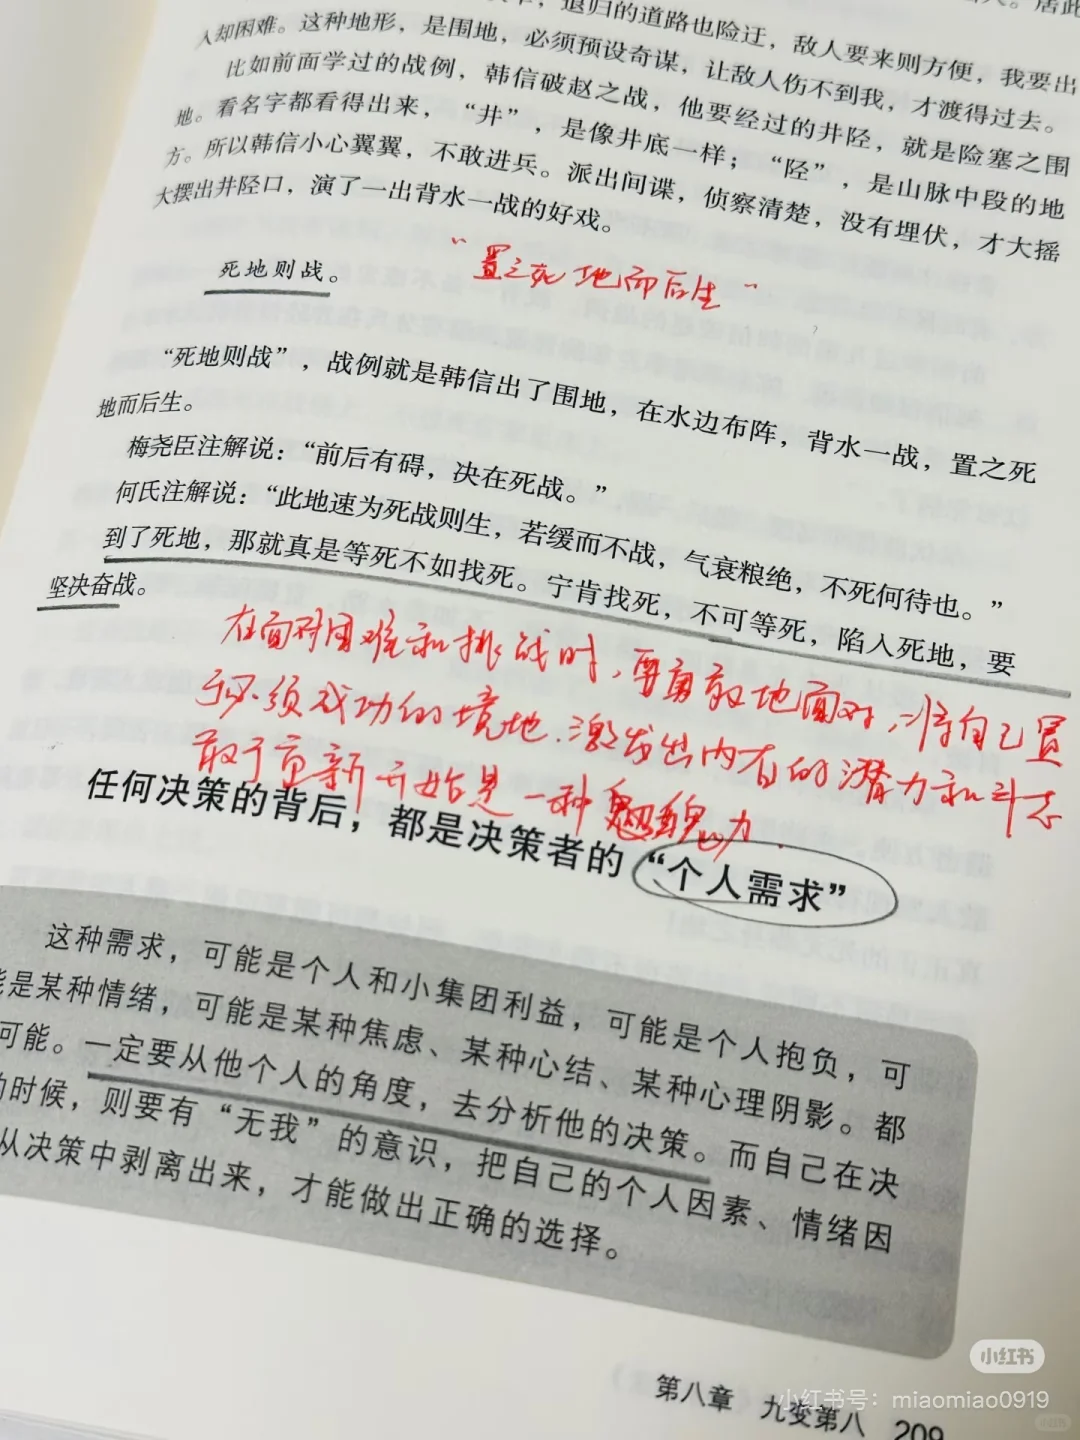 退归的道路也险迂，敌人要来则方便，我要出
人却困难。这种地形，是围地，必须预设奇谋，让敌人伤不到我，才渡得过去。
比如前面学过的战例，韩信破赵之战，他要经过的井陉，就是险塞之围
地。看名字都看得出来，“井”，是像井底一样；“陉”，是山脉中段的地
方。所以韩信小心翼翼，不敢进兵。派出间谍，侦察清楚，没有埋伏，才大摇
大摆出井陉口，演了一出背水一战的好戏。
“置之死地而后生”
死地则战。
“死地则战”，战例就是韩信出了围地，在水边布阵，背水一战，置之死
地而后生。
梅尧臣注解说：“前后有碍，决在死战。”
何氏注解说：“此地速为死战则生，若缓而不战，气衰粮绝，不死何待也。”
到了死地，那就真是等死不如找死。宁肯找死，不可等死，陷入死地，要
坚决奋战。
在面对困难和挑战时，要勇敢地面对，将自己置
于必须成功的境地，激发出内在的潜力和斗志
敢于重新开始是一种魅力.
任何决策的背后，都是决策者的“个人需求”
这种需求，可能是个人和小集团利益，可能是个人抱负，可
能是某种情绪，可能是某种焦虑、某种心结、某种心理阴影。都
可能。一定要从他个人的角度，去分析他的决策。而自己在决
的时候，则要有“无我”的意识，把自己的个人因素、情绪因
从决策中剥离出来，才能做出正确的选择。
小红书
第八章 九变第八 209
小红书号：miaomiao0919